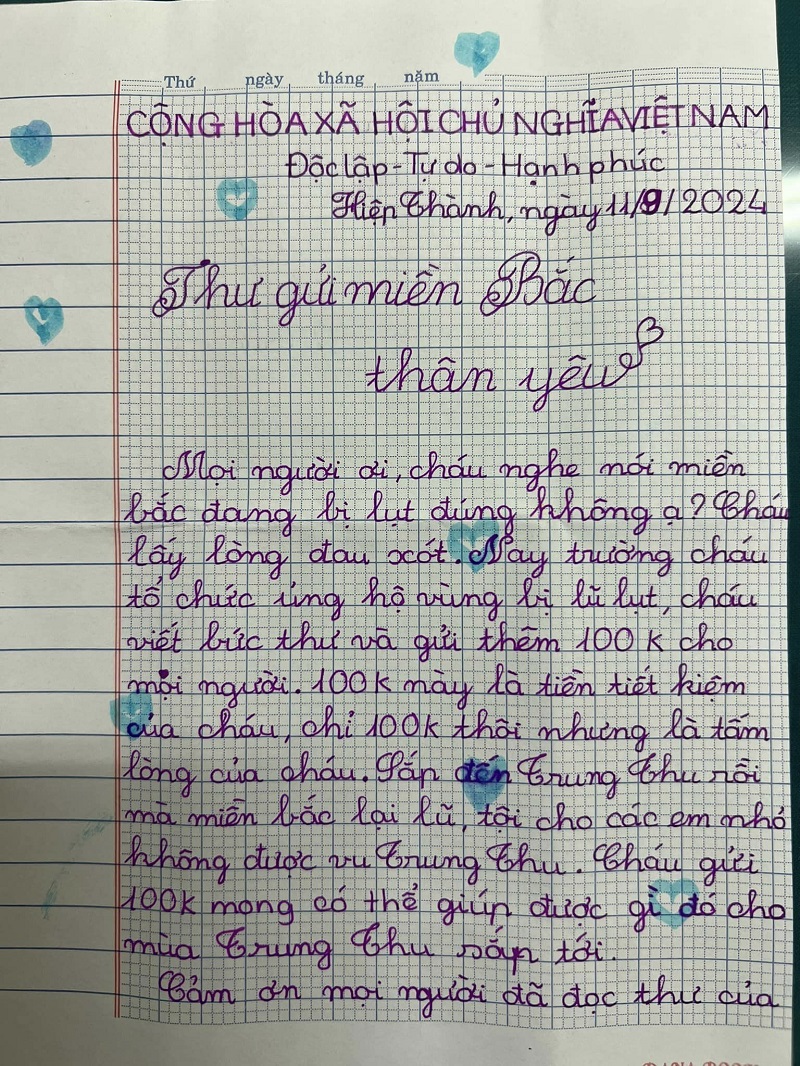 Thứ ngày tháng năm
CỘNG HÒA XÃ HỘI CHỦ NGHĨA VIỆT NAM
Độc lập - Tự do - Hạnh phúc
Hiệp Thành, ngày 11/9/2024
Thư gửi miền Bắc
thân yêu
Mọi người ơi, cháu nghe nói miền
bắc đang bị lụt đúng không ạ? Cháu
lấy lòng đau xót. Nay trường cháu
tổ chức ủng hộ vùng bị lũ lụt, cháu
viết bức thư và gửi thêm 100k cho
mọi người. 100k này là tiền tiết kiệm
của cháu, chỉ 100k thôi nhưng là tấm
lòng của cháu. Sắp đến Trung Thu rồi
mà miền bắc lại lũ, tội cho các em nhỏ
không được vu Trung Thu. Cháu gửi
100k mong có thể giúp được gì đó cho
mùa Trung Thu sắp tới.
Cảm ơn mọi người đã đọc thư của